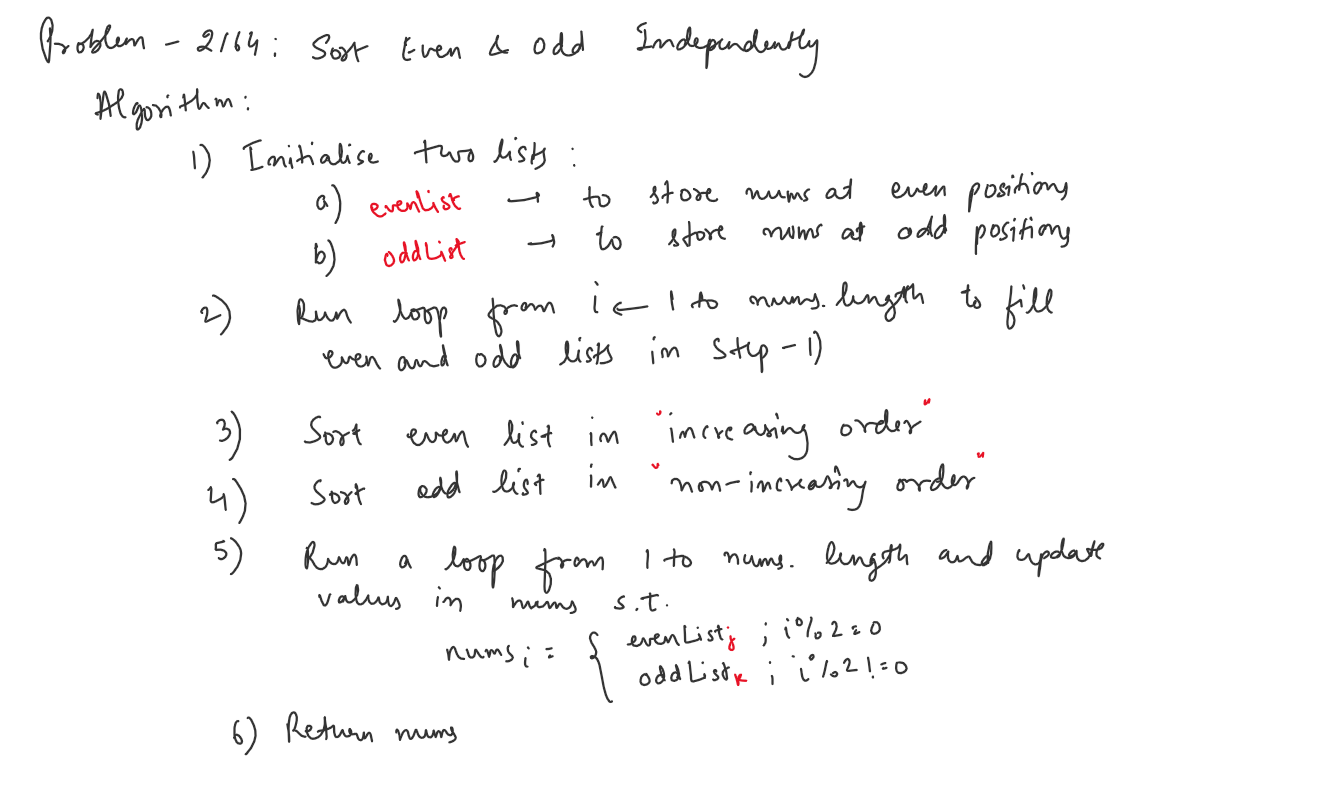 Problem - 2164: Sort Even & Odd Independently
Algorithm:
1) Initialise two lists:
a) evenlist → to store nums at even positions
b) oddList → to store nums at odd positions
2) Run loop from i ← 1 to nums.length to fill
even and odd lists in Step-1)
3) Sort even list in "increasing order"
4) Sort odd list in "non-increasing order"
5) Run a loop from 1 to nums.length and update
values in nums s.t.
nums i = { evenList j ; i%2=0
oddList k ; i%2!=0
6) Return nums